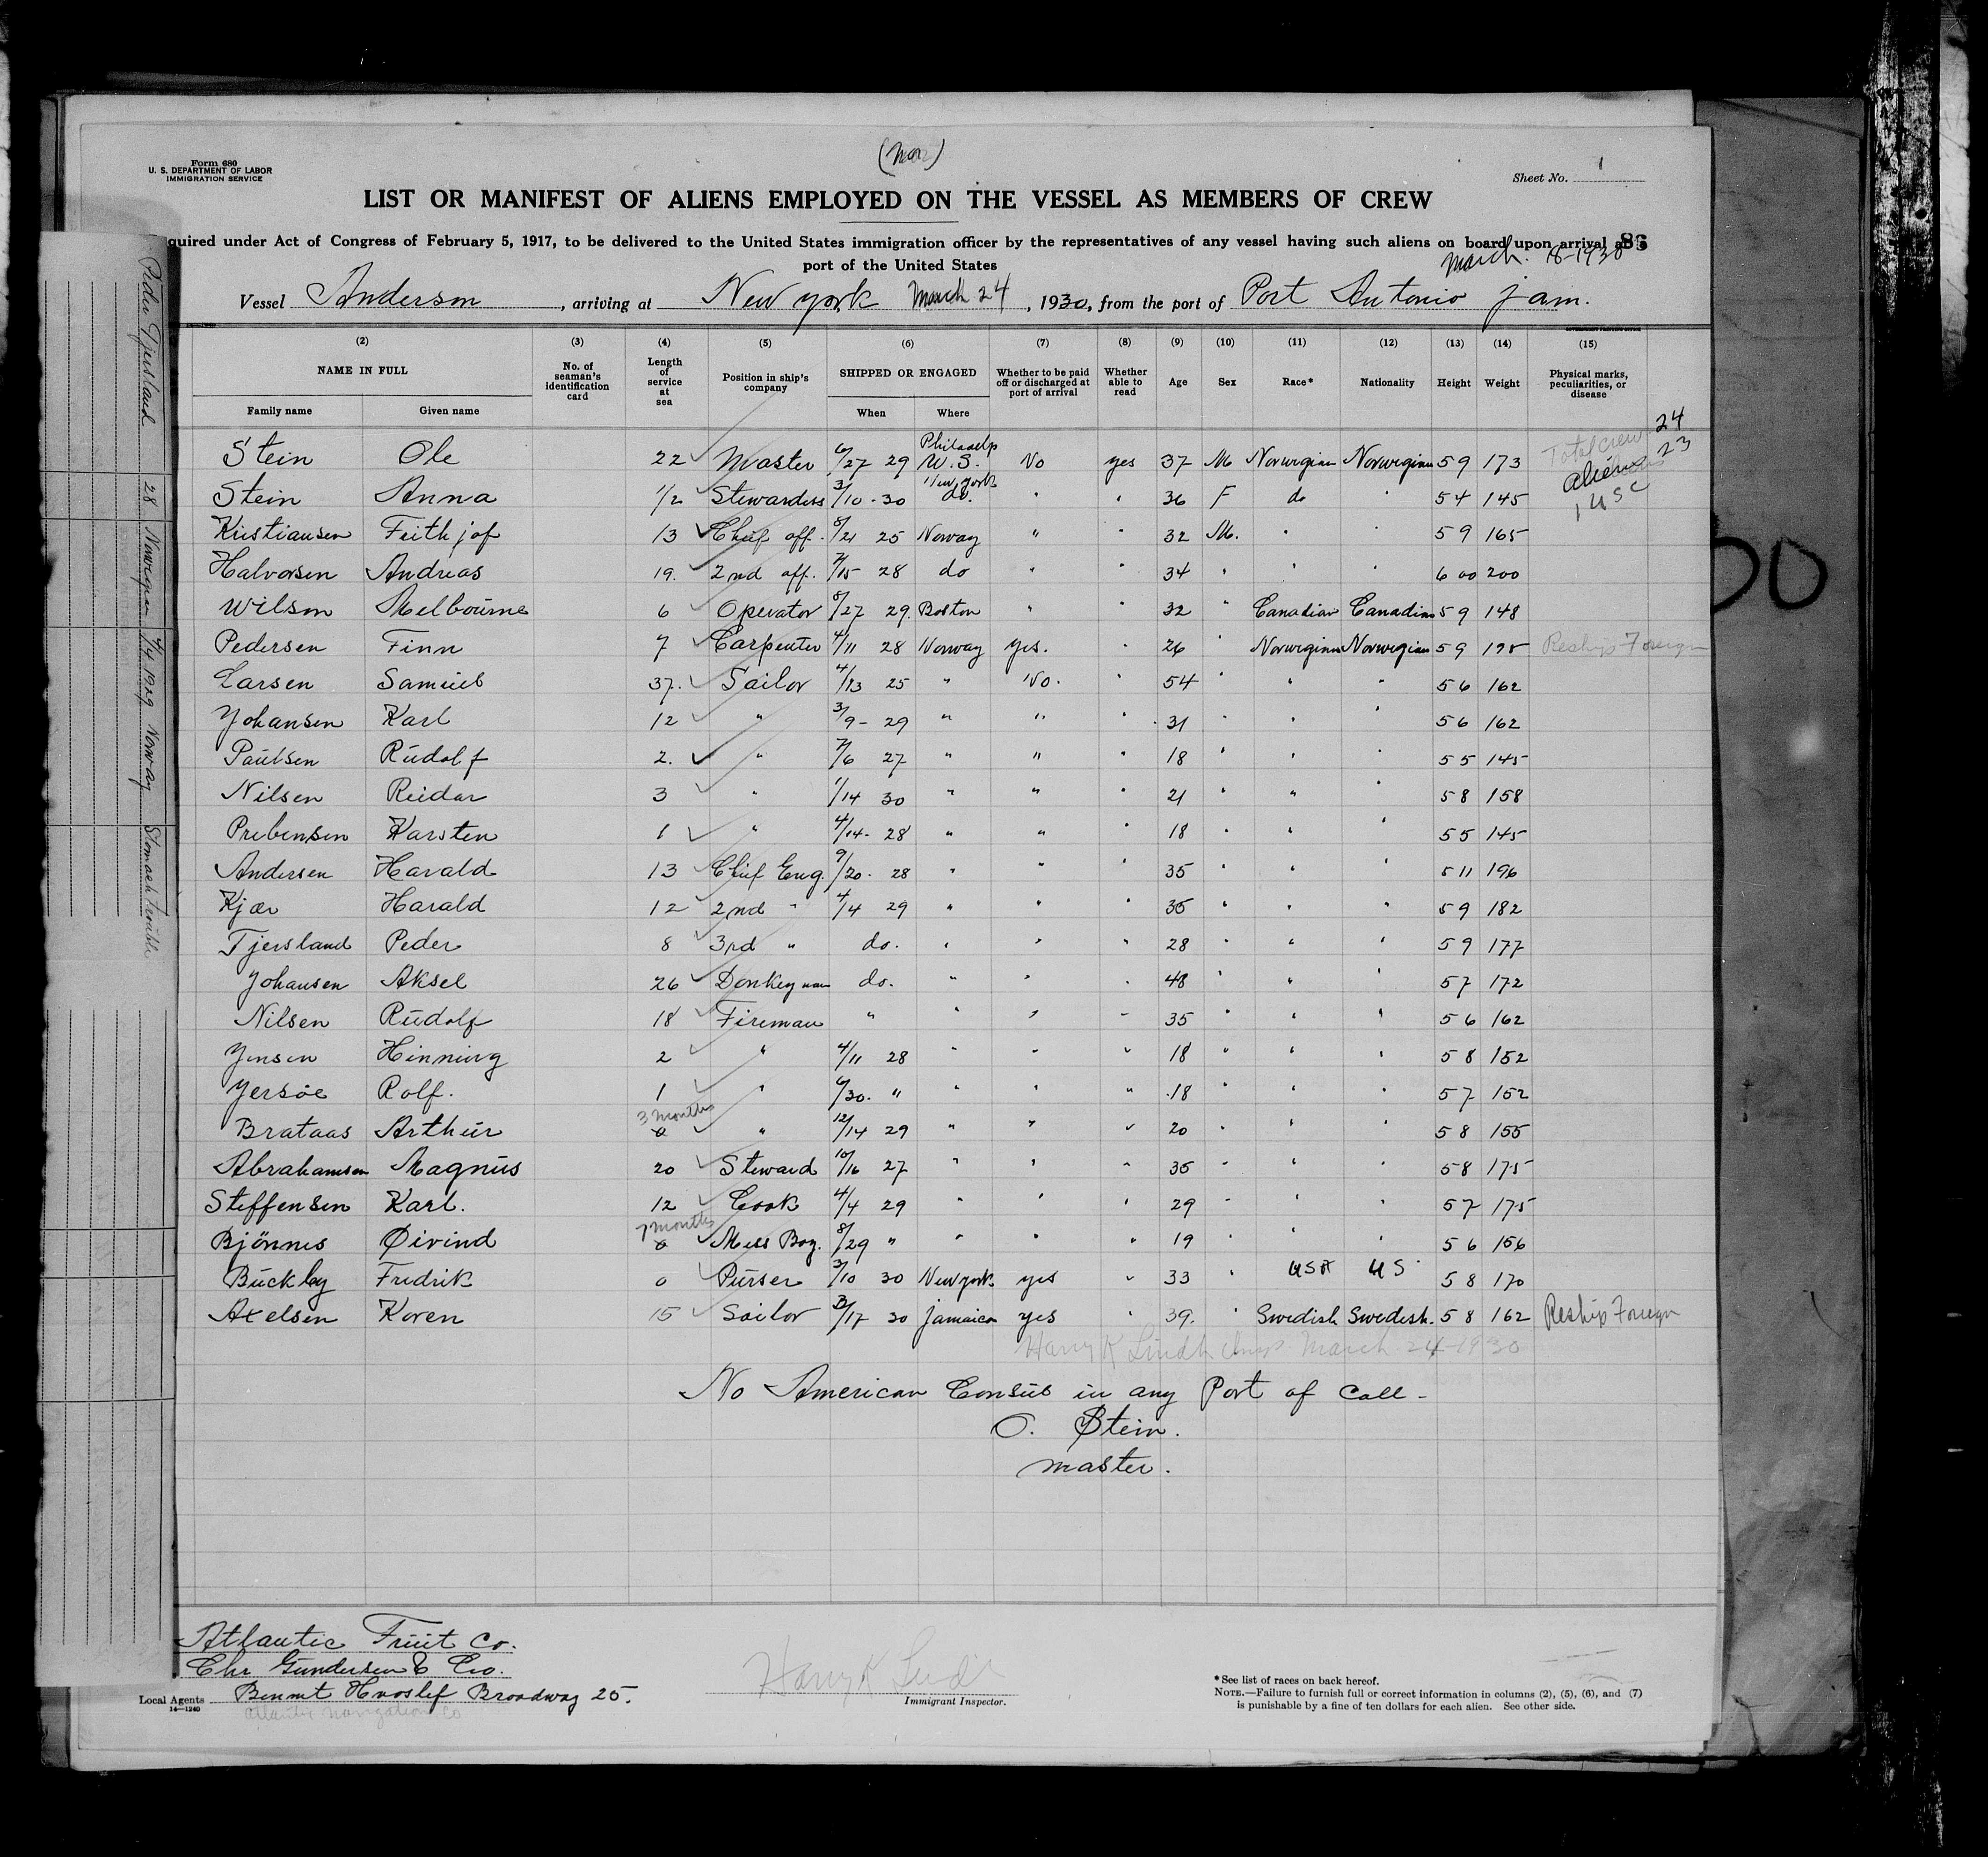 (Nor)
Form 680
U. S. DEPARTMENT OF LABOR
IMMIGRATION SERVICE
Sheet No. 1
LIST OR MANIFEST OF ALIENS EMPLOYED ON THE VESSEL AS MEMBERS OF CREW
quired under Act of Congress of February 5, 1917, to be delivered to the United States immigration officer by the representatives of any vessel having such aliens on board upon arrival
port of the United States
86
March 18-1930
Vessel Anderson, arriving at New York March 24, 1930, from the port of Port Antonio Jam.
(2) (3) (4) (5) (6) (7) (8) (9) (10) (11) (12) (13) (14) (15)
NAME IN FULL No. of seaman's identification card Length of service at sea Position in ship's company SHIPPED OR ENGAGED Whether to be paid off or discharged at port of arrival Whether able to read Age Sex Race* Nationality Height Weight Physical marks, peculiarities, or disease
Family name Given name When Where
Total crew 24
aliens 23
1 USC
Stein Ole 22 Master 6/27 29 Philadelp U.S. No yes 37 M Norwegian Norwegian 5 9 173
Stein Anna 1/2 Stewardess 3/10 - 30 New York do. " " 36 F do " 5 4 145
Kristiansen Frithjof 13 Chief off. 8/21 25 Norway " " 32 M. " " 5 9 165
Halvorsen Andreas 19. 2nd off. 7/15 28 do " " 34 " " " 6 00 200
Wilson Melbourne 6 Operator 8/27 29. Boston " " 32 " Canadian Canadian 5 9 148
Pedersen Finn 7 Carpenter 4/11 28 Norway yes. " 26 " Norwegian Norwegian 5 9 Reship Foreign
Larsen Samuel 37. Sailor 4/23 25 " No. " 54 " " " 5 6 162
Yohansen Karl 12 " 3/9 - 29 " " " 31 " " " 5 6 162
Paulsen Rudolf 2. " 7/6 27 " " " 18 " " " 5 5 145
Nilsen Reidar 3 " 1/14 30 " " 21 " " " 5 8 158
Prebensen Karsten 1 " 4/14 - 28 " " " 18 " " " 5 5 145
Andersen Harald 13 Chief Eng. 9/20 - 28 " " " 35 " " " 5 11 196
Kjær Harald 12 2nd " 4/4 29 " " " 35 " " " 5 9 182
Tjersland Peder 8 3rd " do. " " " 28 " " " 5 9 177
Yohansen Aksel 26 Donkeyman do. " " " 48 " " " 5 7 172
Nilsen Rudolf 18 Fireman " " " " 35 " " " 5 6 162
Yensen Hinning 2 " 4/11 28 " " " 18 " " " 5 8 152
Yersöe Rolf. 1 " 6/30. " " " " 18 " " " 5 7 152
Brataas Arthur 3 months 0 " 12/14 29 " " " 20 " " " 5 8 155
Abrahamsen Magnus 20 Steward 10/16 27 " " " 35 " " " 5 8 175
Steffensen Karl. 12 Cook 4/4 29 " " " 29 " " " 5 7 175
Bjönnes Øivind 7 months 0 Mess Boy. 8/29 " " " " 19 " " " 5 6 156
Buckley Fredrik 0 Purser 3/10 30 New York yes " 33 " USA US 5 8 170
Axelsen Koren 15 Sailor 3/17 30 Jamaica yes " 39. " Swedish Swedish. 5 8 162 Reship Foreign
Harry K Lindh Insp March 24-1930
No American Consul in any Port of Call -
O. Stein.
master.
Peder Tjersland 28 Norwegian 4/4 1929 Norway Stomach trouble
Atlantic Fruit Co.
Chr Gundersen & Co.
Local Agents Bennet Hvoslef Broadway 25.
Atlantic Navigation Co
14—1240
Immigrant Inspector.
* See list of races on back hereof.
NOTE.—Failure to furnish full or correct information in columns (2), (5), (6), and (7)
is punishable by a fine of ten dollars for each alien. See other side.